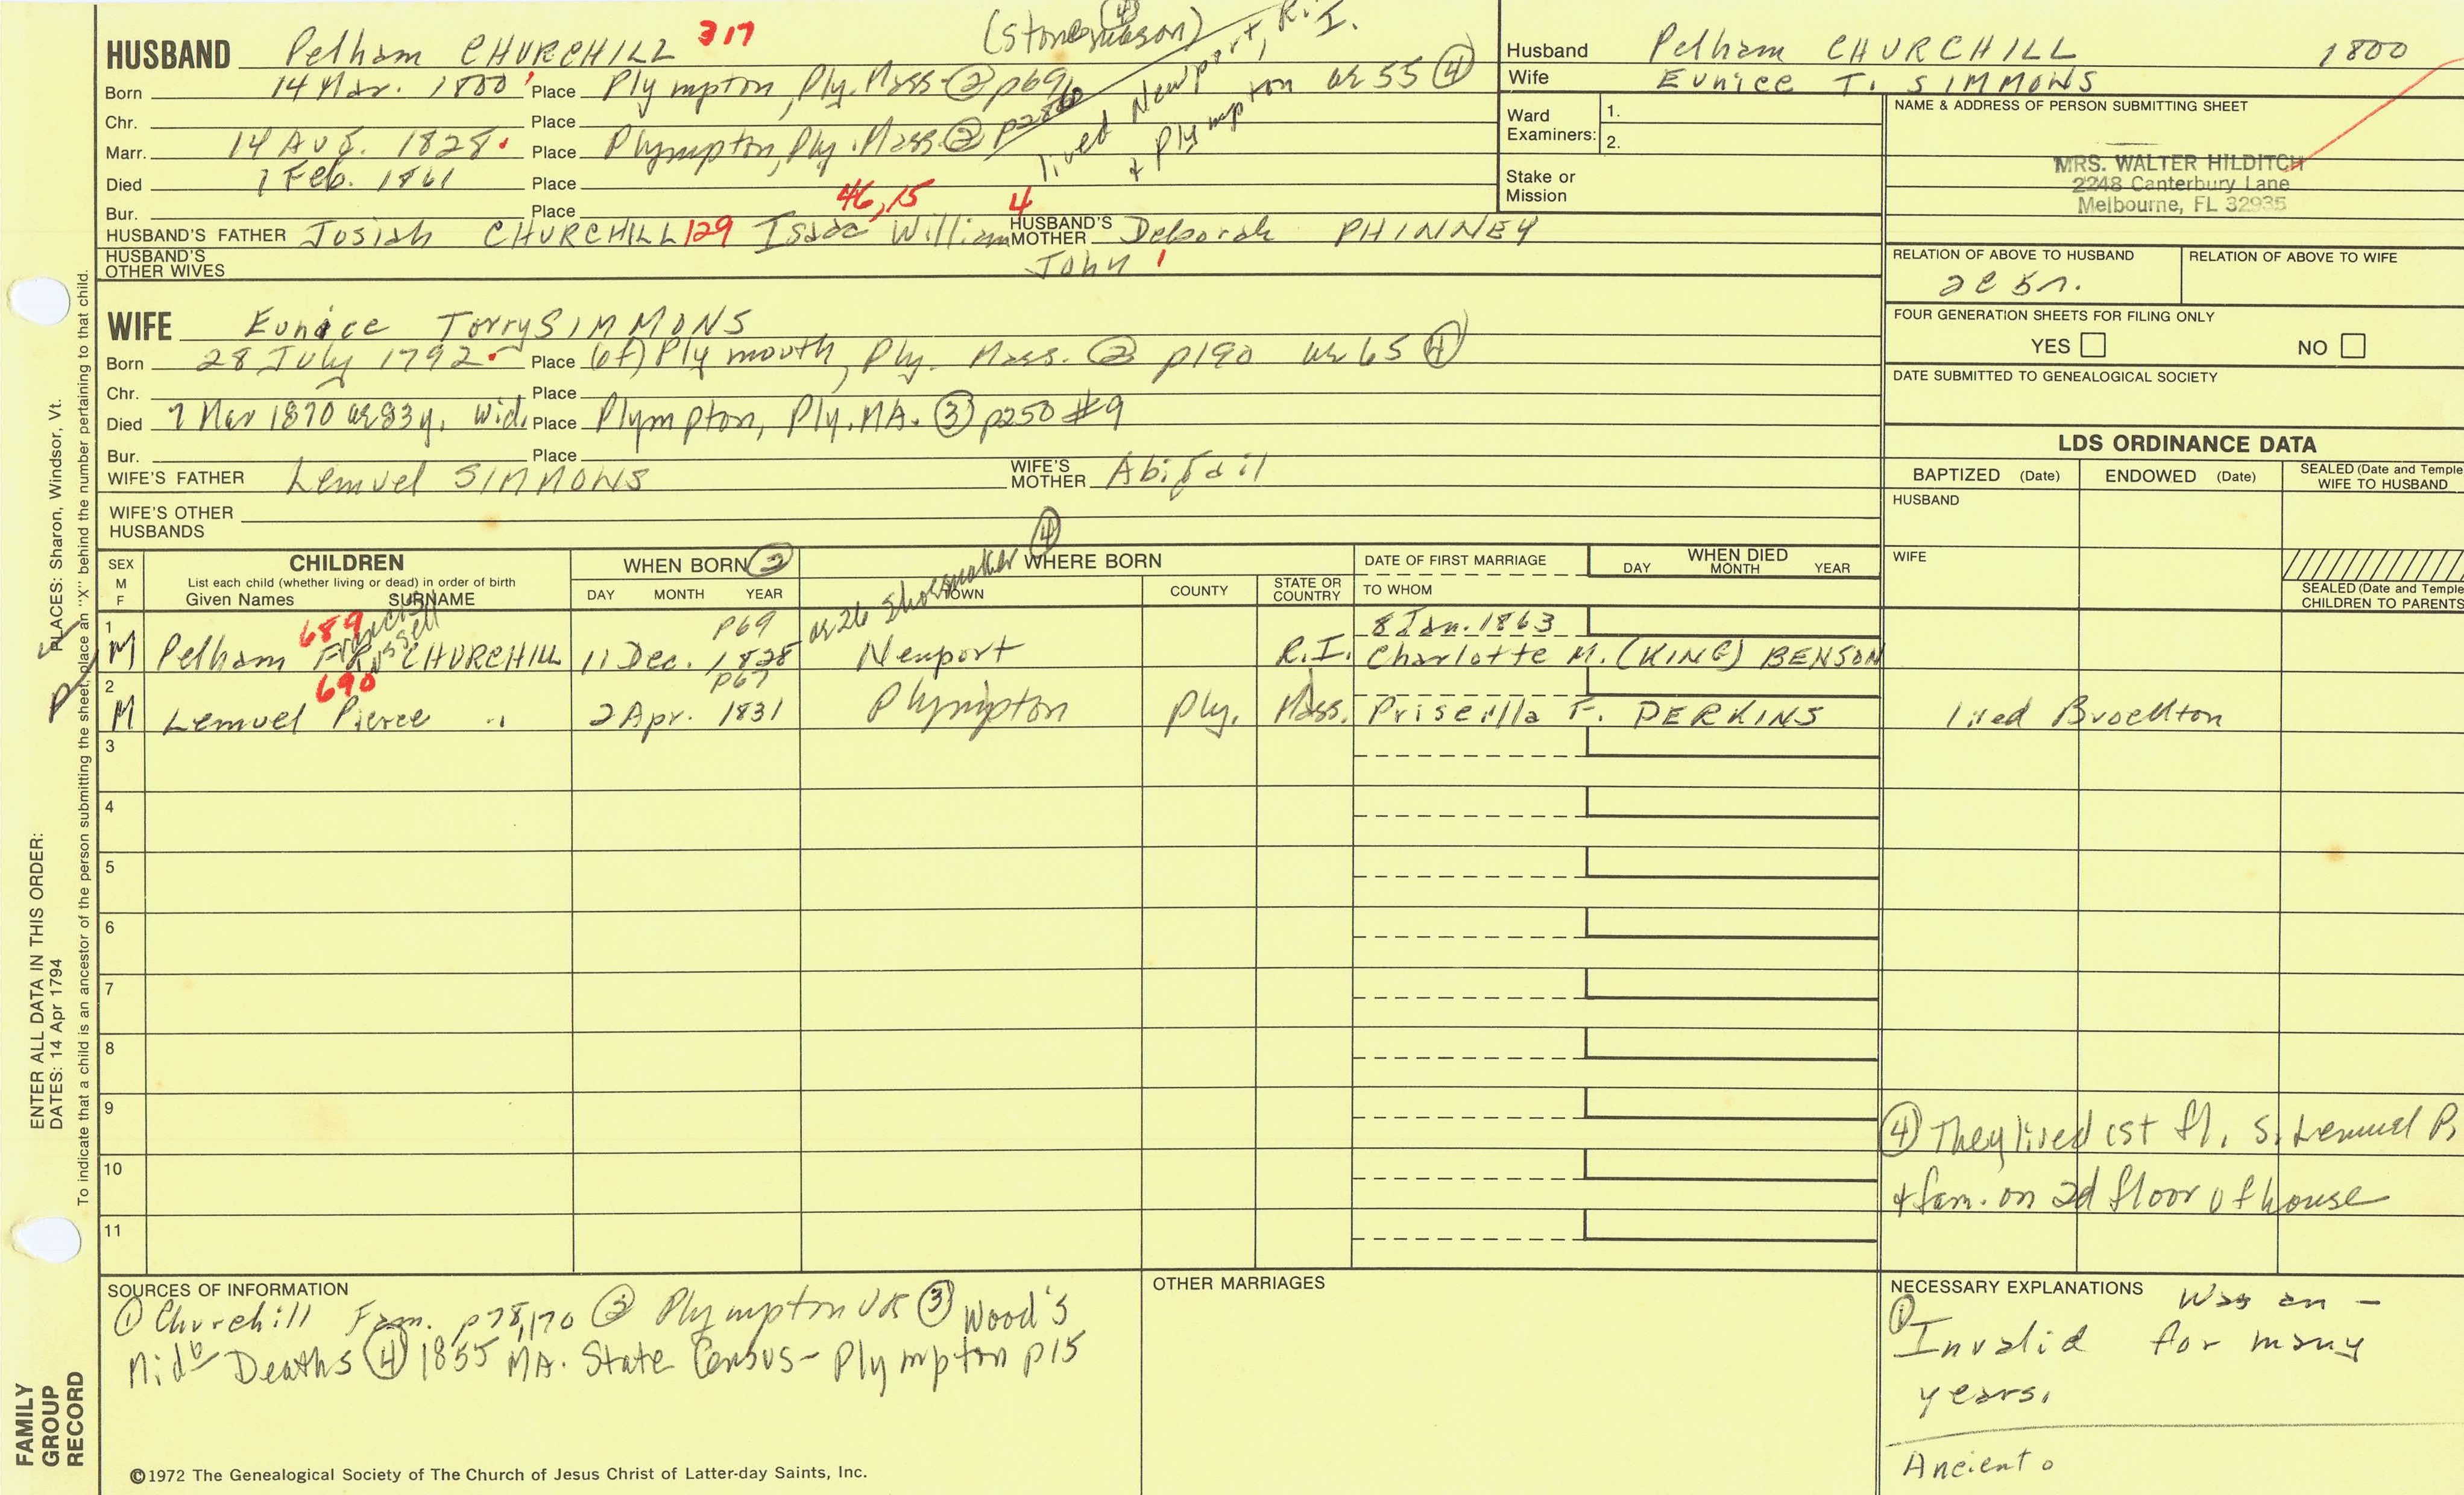 HUSBAND Pelham CHURCHILL 317 (Stone mason) ④
Born 14 Mar. 1800 Place Plympton, Ply. Mass. ② p69
lived Newport, R.I.
& Plympton ae 55 ④
Chr. Place
Marr. 14 Aug. 1828 Place Plympton, Ply. Mass. ②
Died 7 Feb. 1861 Place
Bur. Place
HUSBAND'S FATHER Josiah CHURCHILL 129 Isaac 46,15 William 4 HUSBAND'S MOTHER Deborah PHINNEY
John 1
HUSBAND'S OTHER WIVES
Husband Pelham CHURCHILL 1800
Wife Eunice T. SIMMONS
Ward Examiners: 1.
2.
Stake or Mission
NAME & ADDRESS OF PERSON SUBMITTING SHEET
MRS. WALTER HILDITCH
2248 Canterbury Lane
Melbourne, FL 32935
RELATION OF ABOVE TO HUSBAND RELATION OF ABOVE TO WIFE
FOUR GENERATION SHEETS FOR FILING ONLY
YES NO
DATE SUBMITTED TO GENEALOGICAL SOCIETY
WIFE Eunice Torry SIMMONS
Born 28 July 1792 Place (of) Plymouth, Ply. Mass. ② p190 ae 65 ④
Chr. Place
Died 7 Mar 1870 ae 83y. wid. Place Plympton, Ply. MA. ③ p250 #9
Bur. Place
WIFE'S FATHER Lemuel SIMMONS WIFE'S MOTHER Abigail
WIFE'S OTHER HUSBANDS
LDS ORDINANCE DATA
BAPTIZED (Date) ENDOWED (Date) SEALED (Date and Temple) WIFE TO HUSBAND
HUSBAND
WIFE
SEALED (Date and Temple) CHILDREN TO PARENTS
SEX M F
CHILDREN
List each child (whether living or dead) in order of birth
Given Names SURNAME
WHEN BORN ②
DAY MONTH YEAR
WHERE BORN
TOWN COUNTY STATE OR COUNTRY
DATE OF FIRST MARRIAGE
TO WHOM
WHEN DIED
DAY MONTH YEAR
ae 26 Shoemaker ④
689 Francis Russell p69 8 Jan. 1863
1 M Pelham F.R. CHURCHILL 11 Dec. 1828 Newport R.I. Charlotte M. (KING) BENSON
690 p67
2 M Lemuel Pierce " 2 Apr. 1831 Plympton Ply. Mass. Priscilla F. PERKINS lived Brockton
3
4
5
6
7
8
9
10
11
④ They lived 1st fl. s. Lemuel P.
& fam. on 2d floor of house
SOURCES OF INFORMATION
① Churchill Fam. p78,170 ② Plympton VR ③ Wood's
Midb Deaths ④ 1855 MA. State Census - Plympton p15
OTHER MARRIAGES
NECESSARY EXPLANATIONS
① Was an -
Invalid for many
years.
Ancient
©1972 The Genealogical Society of The Church of Jesus Christ of Latter-day Saints, Inc.
FAMILY GROUP RECORD
ENTER ALL DATA IN THIS ORDER:
DATES: 14 Apr 1794 PLACES: Sharon, Windsor, Vt.
To indicate that a child is an ancestor of the person submitting the sheet, place an "X" behind the number pertaining to that child.